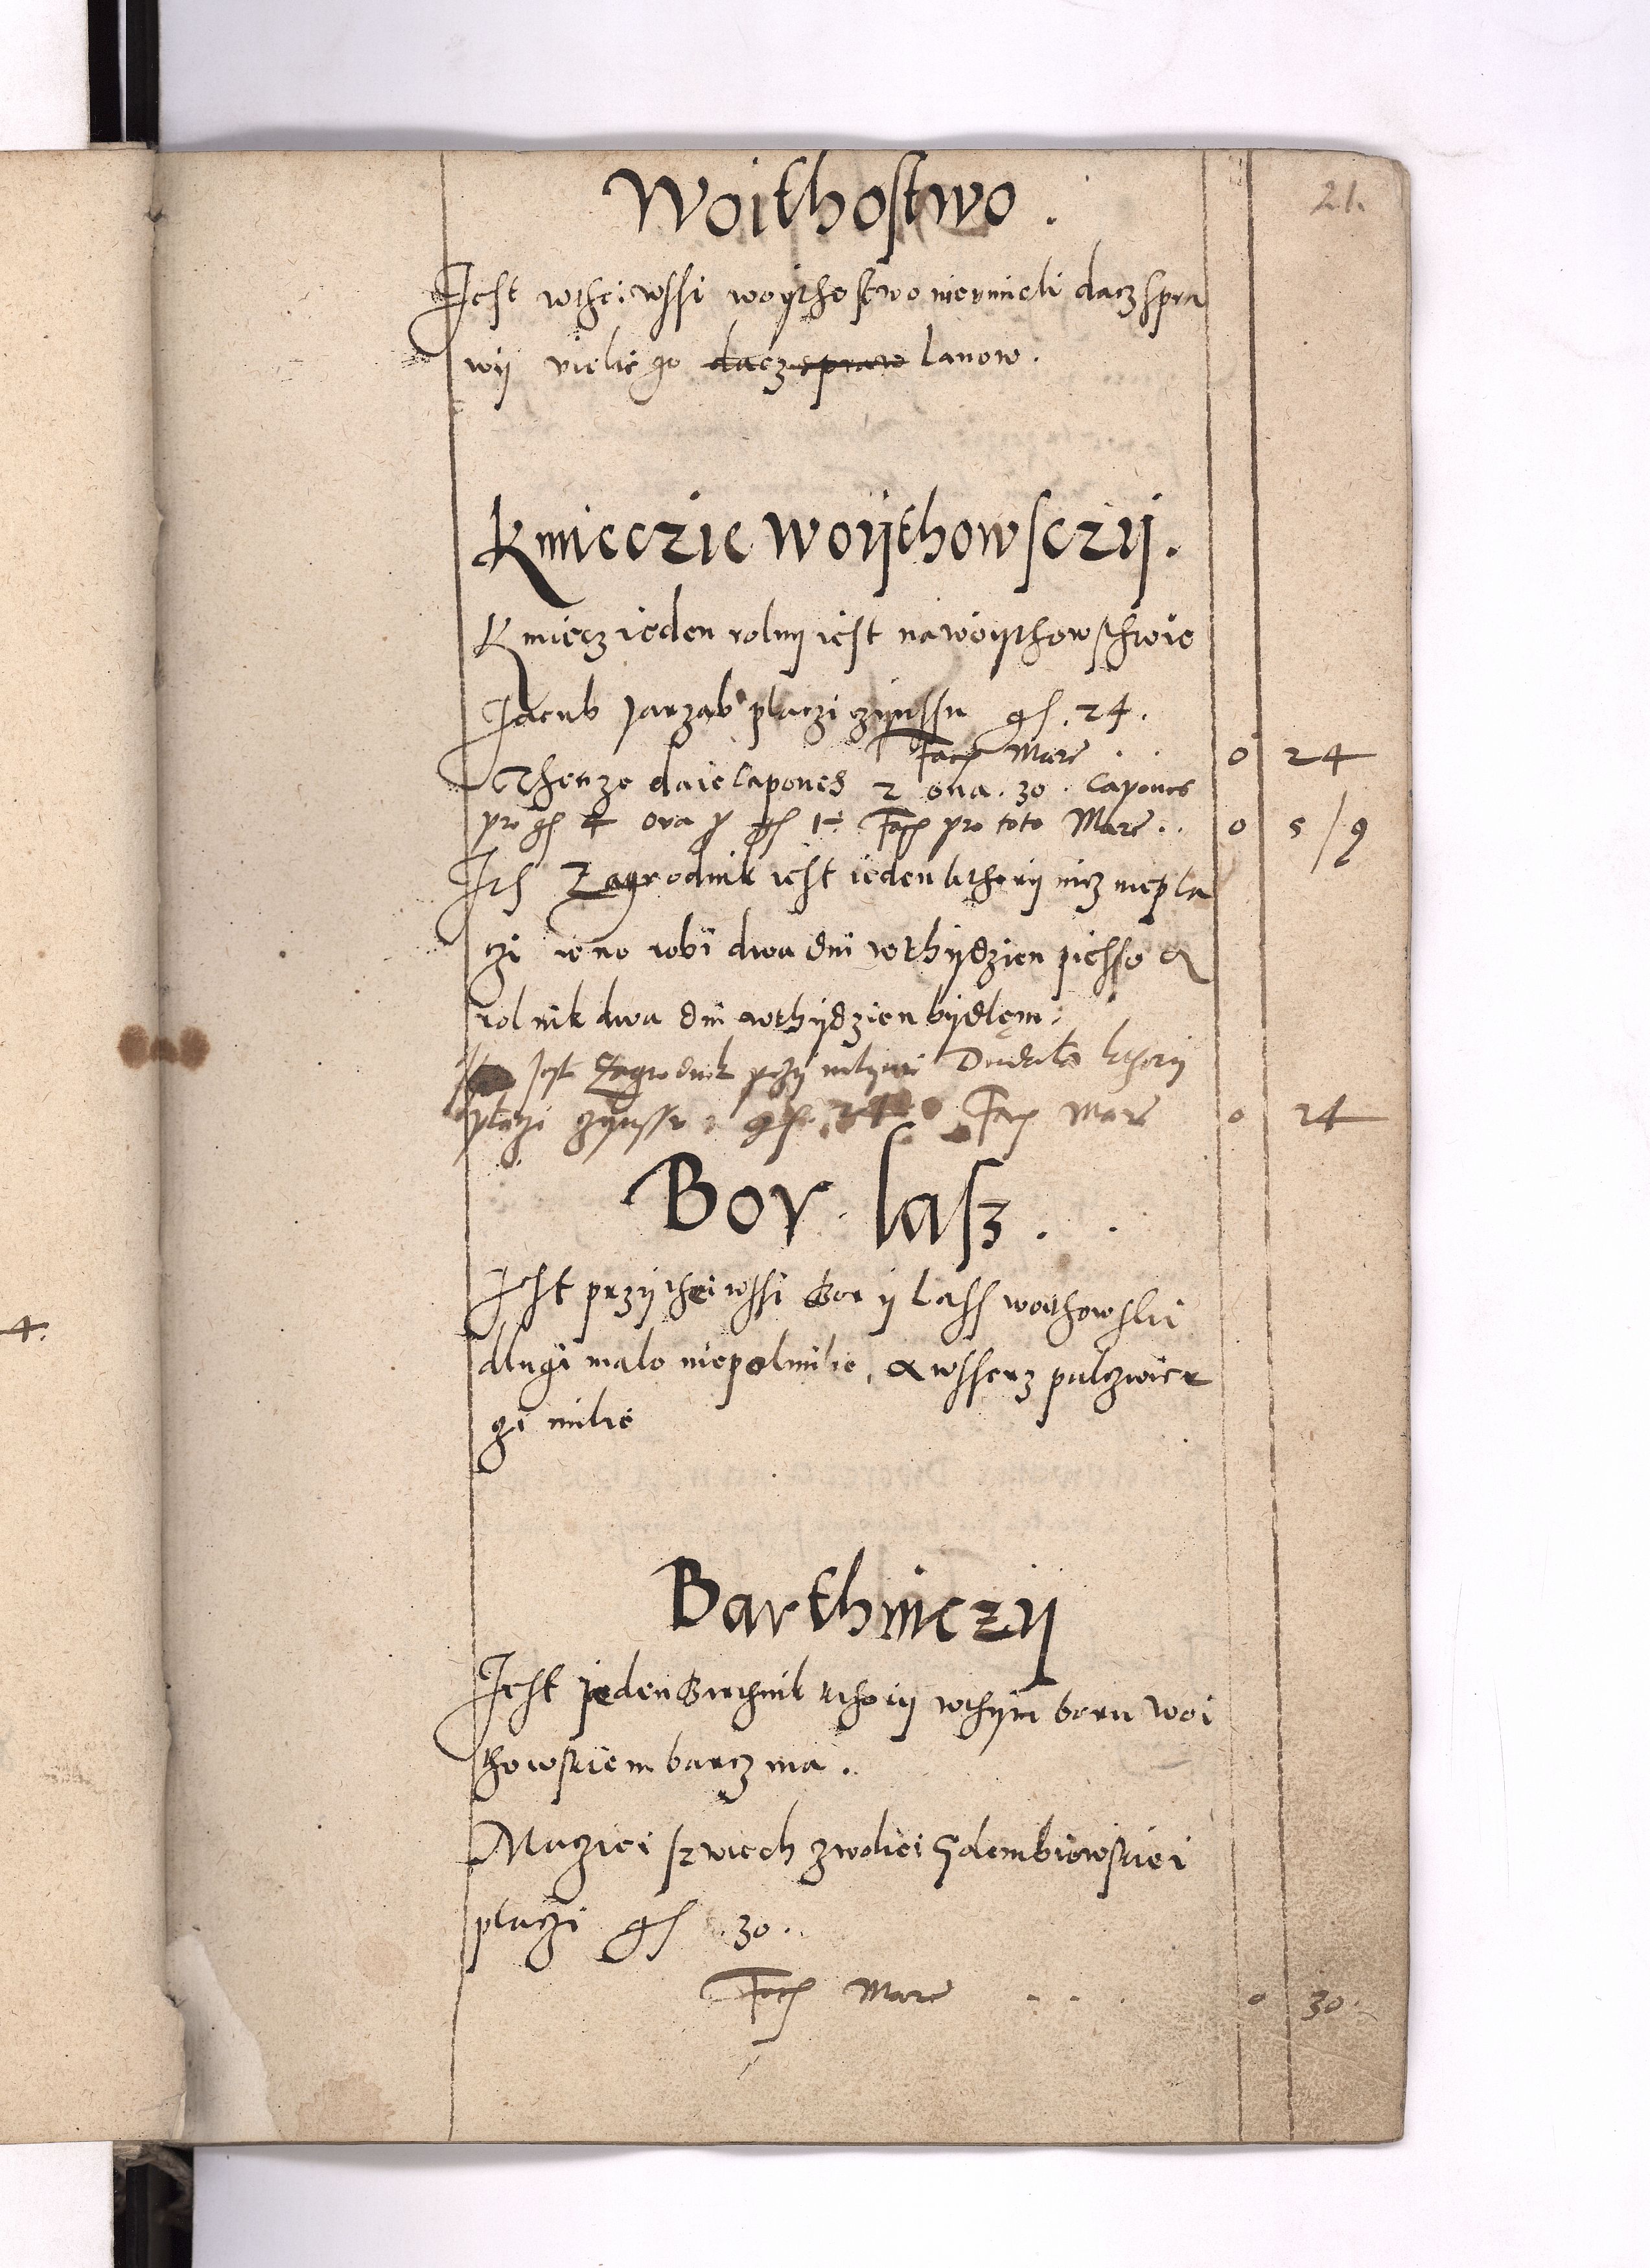 21.
Woithostwo.
Jest wthei wssi woÿthostwo niewmieli dacz spra
wÿ wielie go dacz sprawe lanow.
Kmieczie woÿthowsczÿ.
Kmiecz ieden rolnÿ iest na woÿthowsthwie
Jacub Jarząb placzi czÿnssu gs. 24.
Facit Marc . . 0 24
Thenze daie capones 2 oua. 30. capones
pro gs 4 ova p gs 1÷ Facit pro toto Marc . . 0 5/9
Jth Zagrodnik iest ieden kthorÿ nicz niepla
czi ieno robi dwa dni wthÿdzien piesso A
rolnik dwa dni wthÿdzien bÿdlęm.
Jest Zagrodnik przÿ mlÿnie Dudała kthorÿ
placzi czÿnssu gs. 24 Facit Marc 0 24
Bor. lasz.
Jest przÿ thei wssi Bor ÿ Lass woithowski
dlugi malo niepolmilie, A wsserz pulczwier
czi milie
Barthniczÿ
Jest jeden Barthnik kthorÿ wthÿm boru woi
thowskiem barcz ma.
Maziei szwiech zwoliei Gdembiowskiei
placzi gs 30.
Facit Marc . . . 0 30.
4.